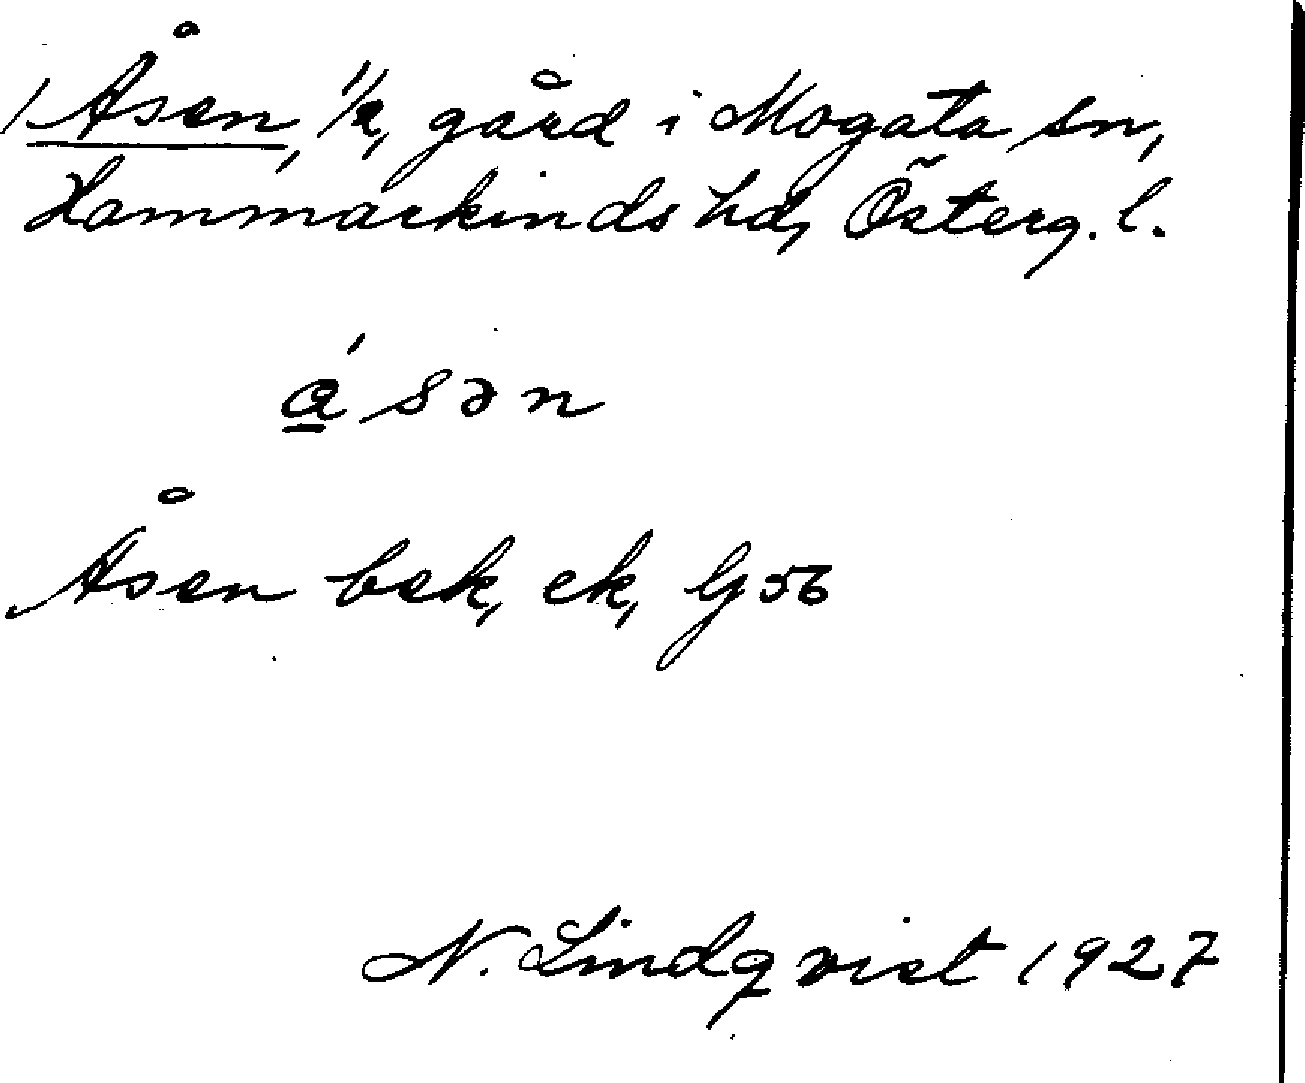 / Åsen, 1/2, gård i Mogata sn,
Hammarkinds hd, Österg. l.
á̱ sən
Åsen bek, ek, Gj 56
N. Lindqvist 1927